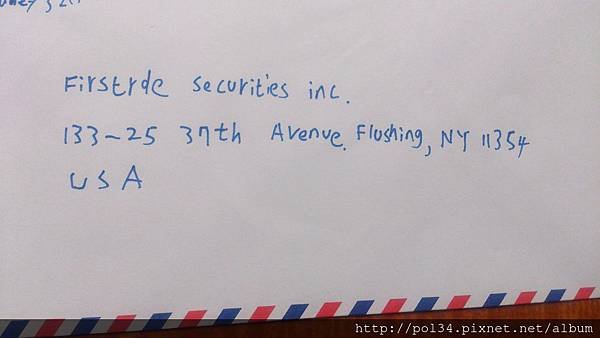 Firstrde securities inc.
133-25 37th Avenue. Flushing, NY 11354
USA
http://pol34.pixnet.net/album